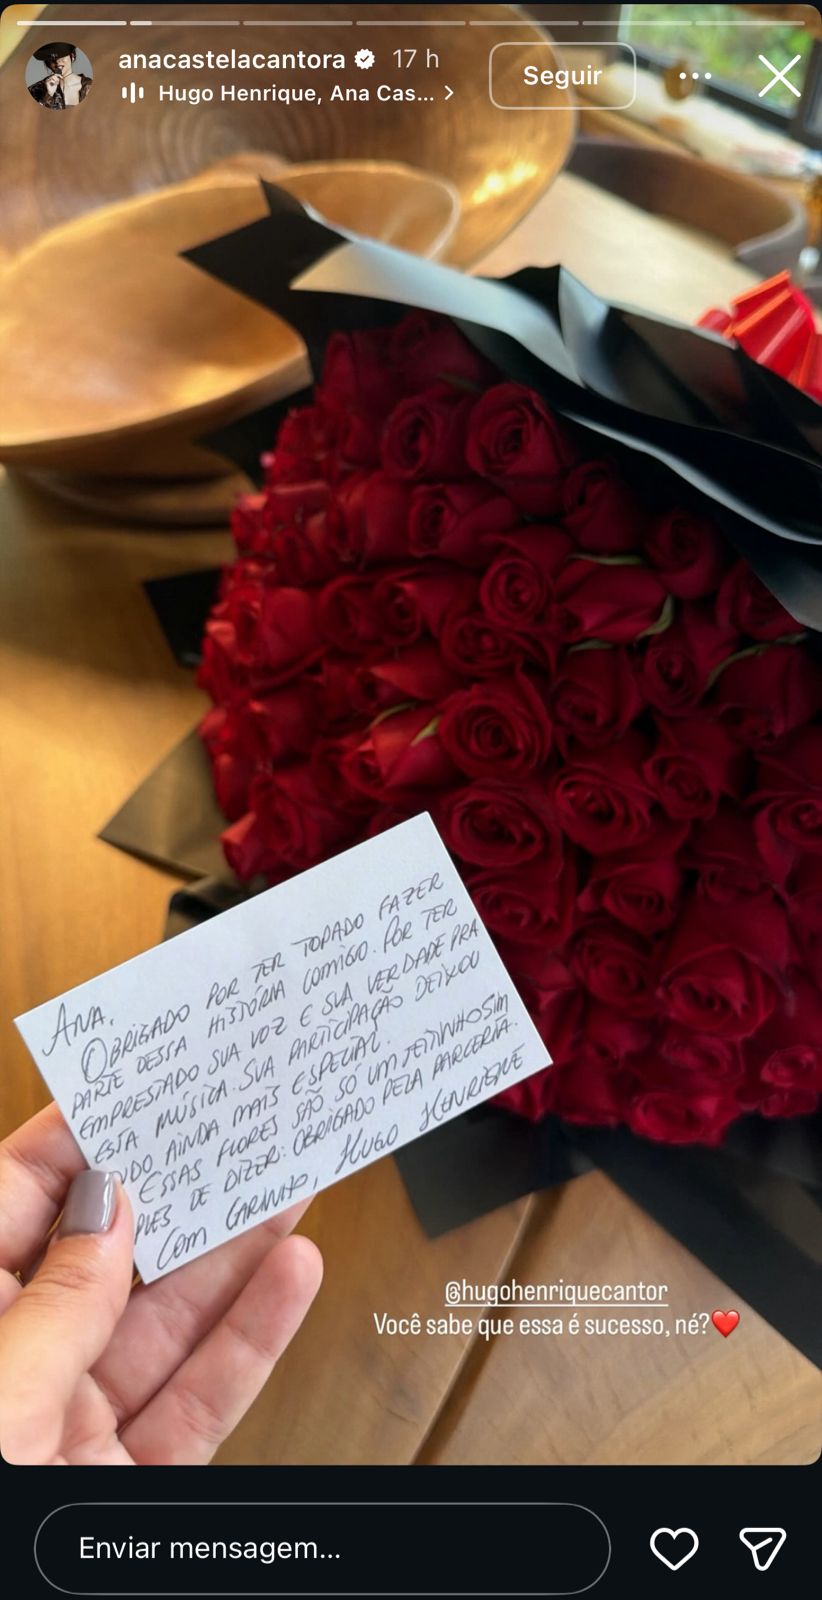 anacastelacantora 17 h
Hugo Henrique, Ana Cas...
Seguir
ANA.
OBRIGADO POR TER TOPADO FAZER
PARTE DESSA HISTÓRIA COMIGO. POR TER
EMPRESTADO SUA VOZ E SUA VERDADE PRA
ESTA MÚSICA. SUA PARTICIPAÇÃO DEIXOU
AINDA MAIS ESPECIAL.
ESSAS FLORES SÃO SÓ UM JEITINHO SIM
PLES DE DIZER: OBRIGADO PELA PARCERIA.
COM CARINHO, HUGO HENRIQUE
@hugohenriquecantor
Você sabe que essa é sucesso, né?❤️
Enviar mensagem...